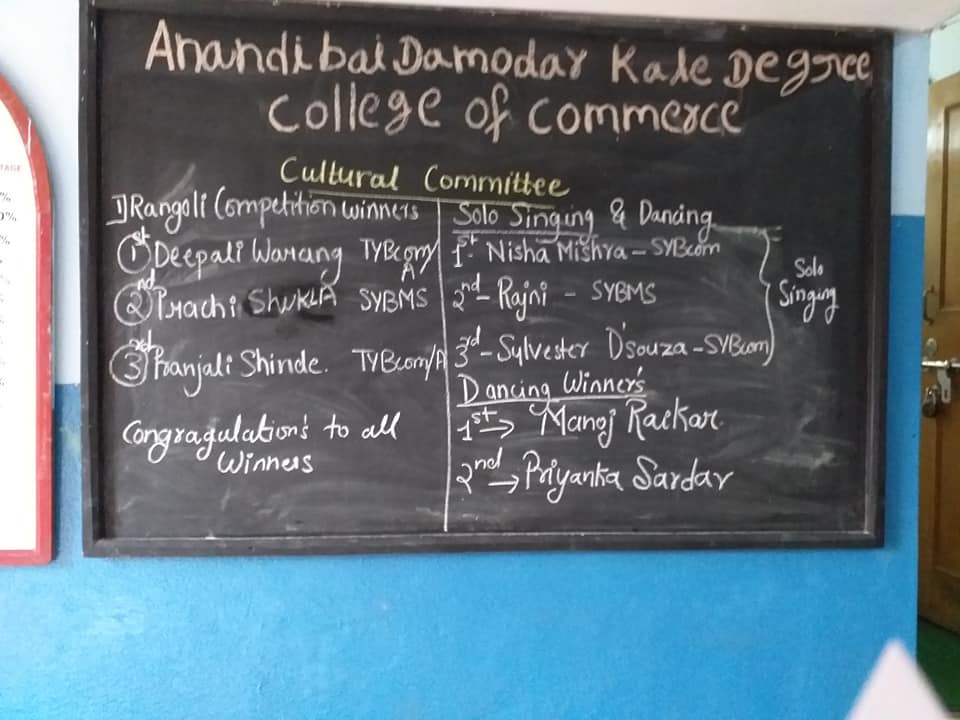 Anandibai Damodar Kale Degree
College of Commerce
Cultural Committee
1) Rangoli Competition winners
1st Deepali Warang TYBcom/A
2nd Prachi Shukla SYBMS
3rd Pranjali Shinde. TYBcom/A
Congragulation's to all
Winners
Solo Singing & Dancing
1st- Nisha Mishra - SYBcom
2nd- Rajni - SYBMS
3rd- Sylvester D'souza - SYBcom
Solo
Singing
Dancing Winner's
1st → Manoj Raikar
2nd → Priyanka Sardar